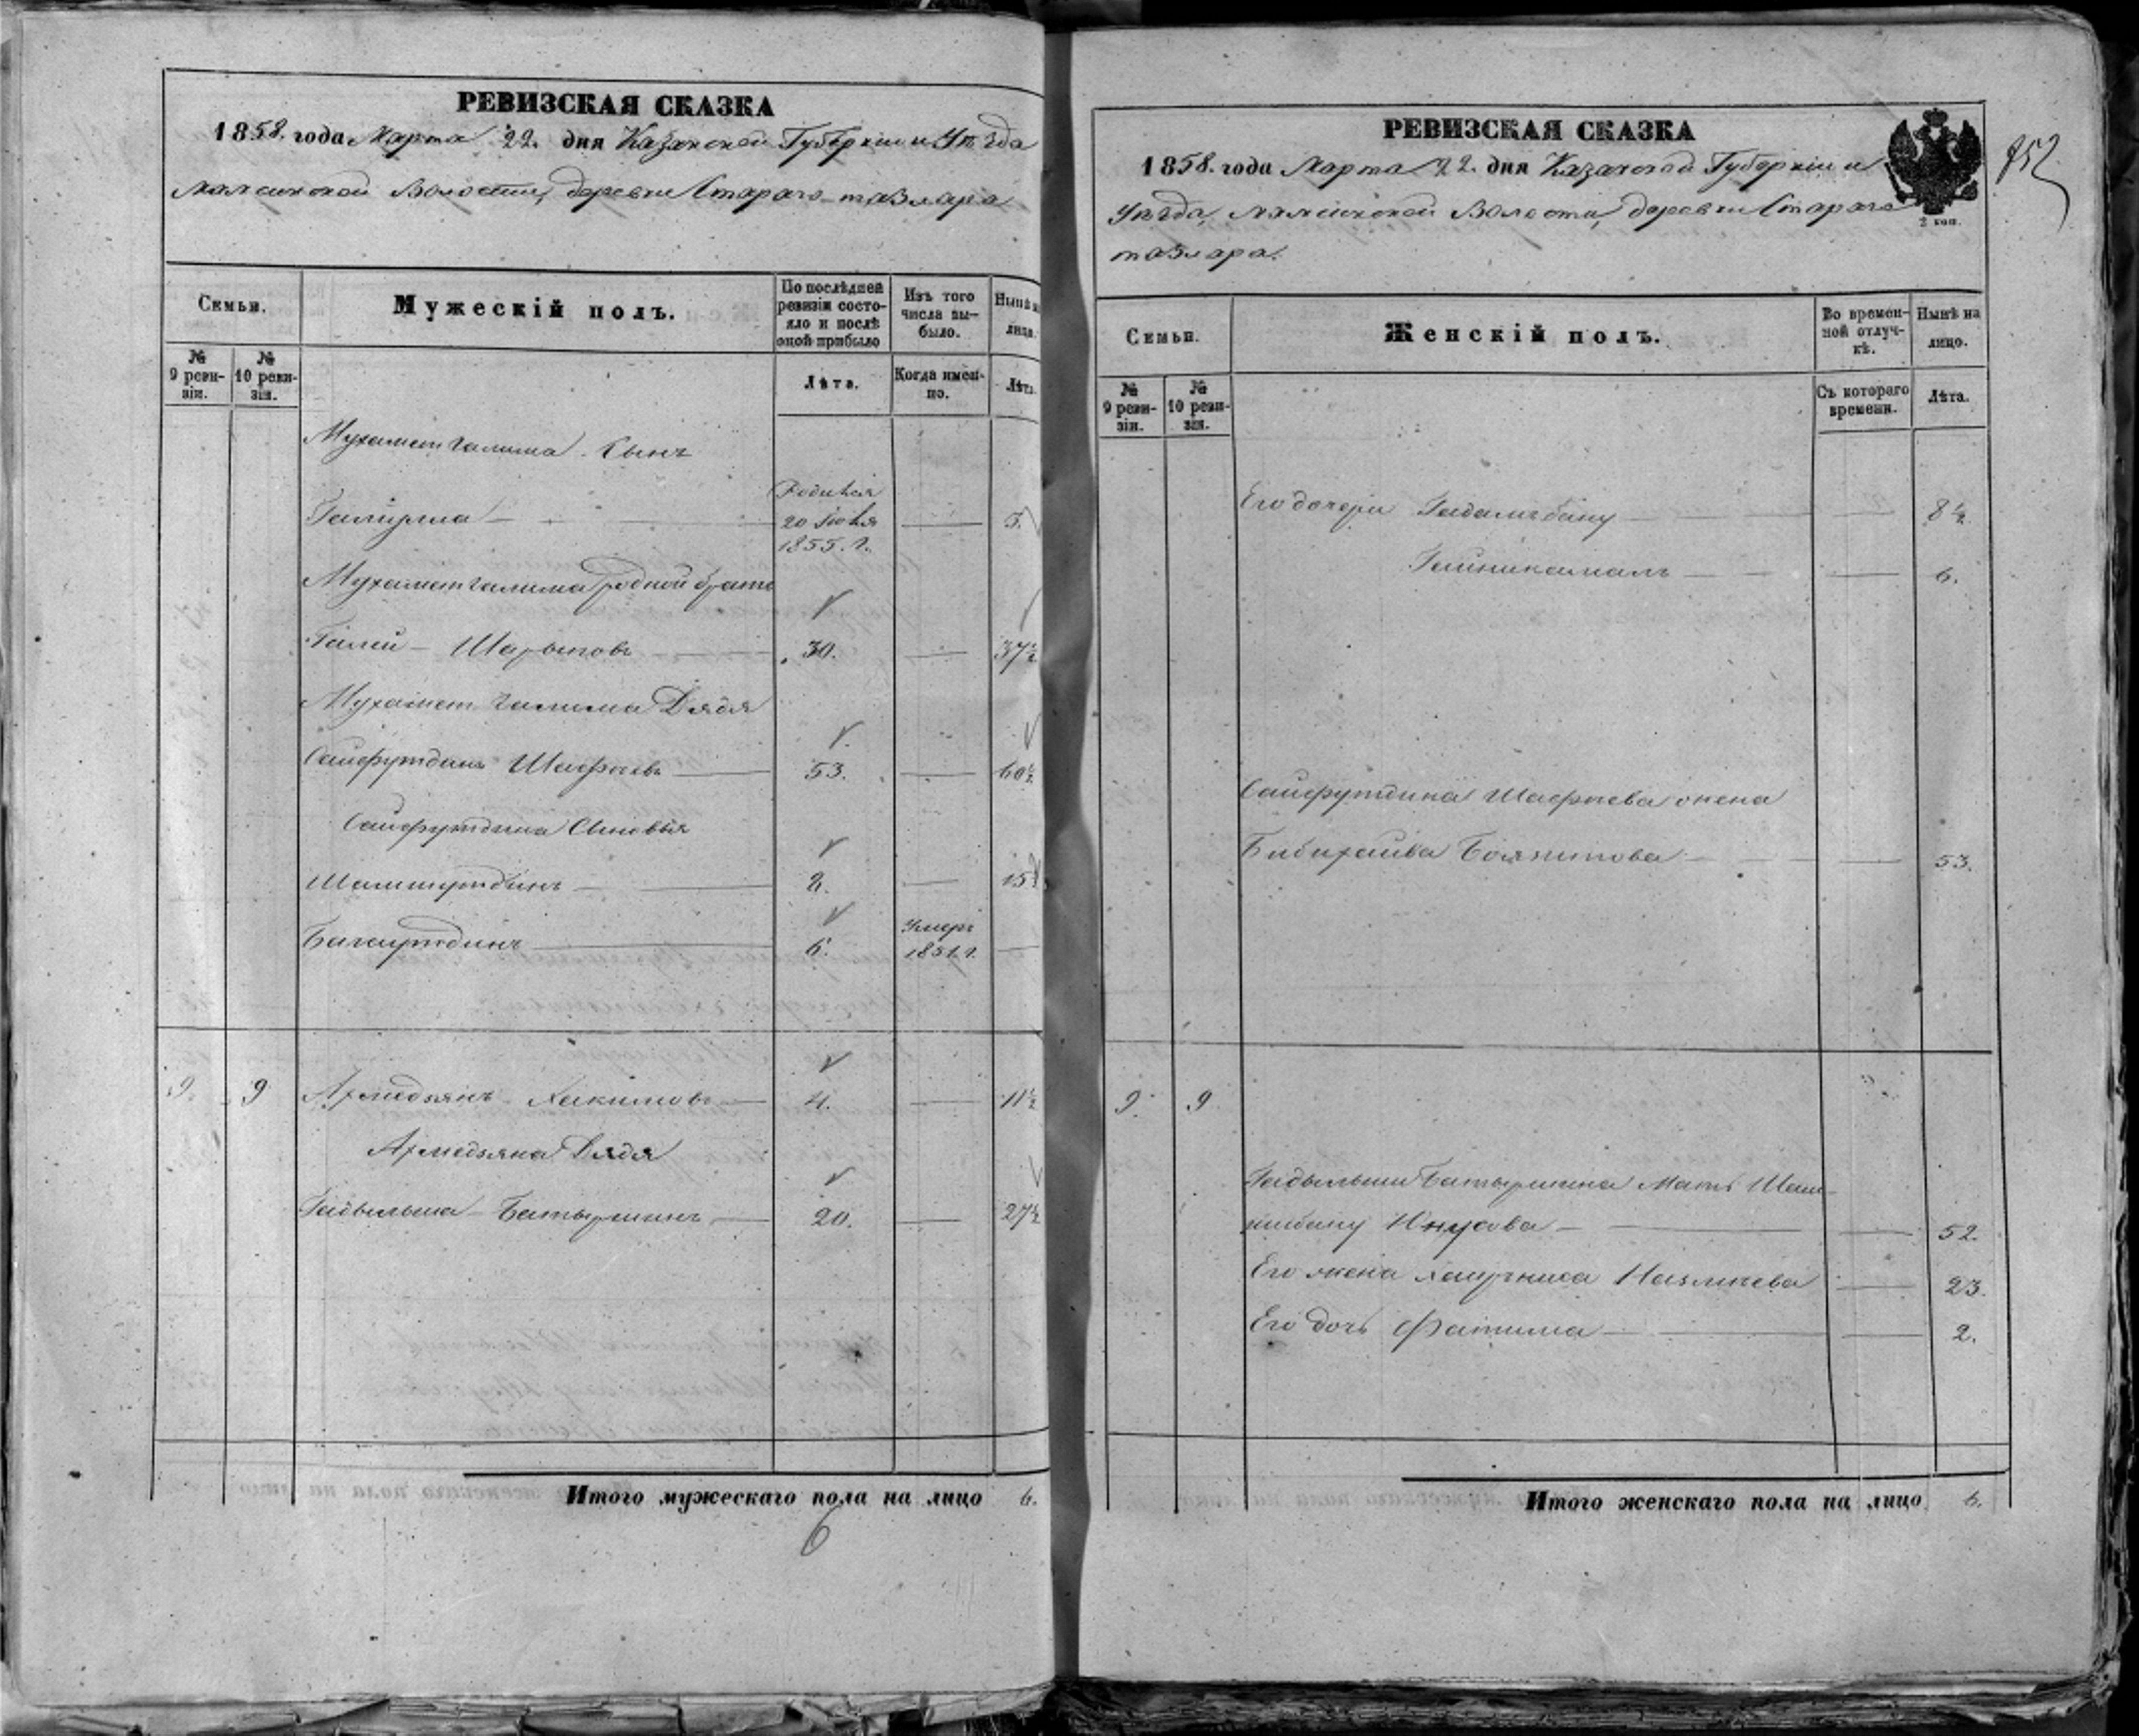 РЕВИЗСКАЯ СКАЗКА
1858. года Марта 22. дня Казанской Губерніи и Уѣзда
Мамсинской Волости, деревни Стараго-тазлара
Семьи.
Мужескій полъ.
По послѣдней ревизіи состояло и послѣ оной прибыло
Изъ того числа выбыло.
Нынѣ на лицо.
№ 9 ревизіи.
№ 10 ревизіи.
Лѣта.
Когда именно.
Лѣта.
Мухаметгалима Сынъ
Родился
20 Іюня
1855. г.
Мухаметгалима родной братъ
Галей Шарыповъ 30. 37½
Мухаметгалима Дядя
Сайфутдинъ Шафѣевъ 53. 60½
Сайфутдина Сыновья
8. 15½
Багаутдинъ 6. Умеръ 1851. г.
9. 9 Ахмедзянъ Хакимовъ 4. 11½
Ахмедзяна Дядя
Габдылша Батыршинъ 20. 27½
Итого мужескаго пола на лицо 6.
6
РЕВИЗСКАЯ СКАЗКА
1858. года Марта 22. дня Казанской Губерніи и
Уѣзда, Мамсинской Волости, деревни Стараго
тазлара.
2 коп.
852
Семьи.
Женскій полъ.
Во временной отлучкѣ.
Нынѣ на лицо.
№ 9 ревизіи.
№ 10 ревизіи.
Съ котораго времени.
Лѣта.
Его дочери 8½
Гайникамалъ 6.
Сайфутдина Шафѣева жена
53.
9. 9
Габдылши Батыршина Мать Шам-
сибану Юнусова 52.
Его жена 23.
Его дочь Фатима 2.
Итого женскаго пола на лицо 6.